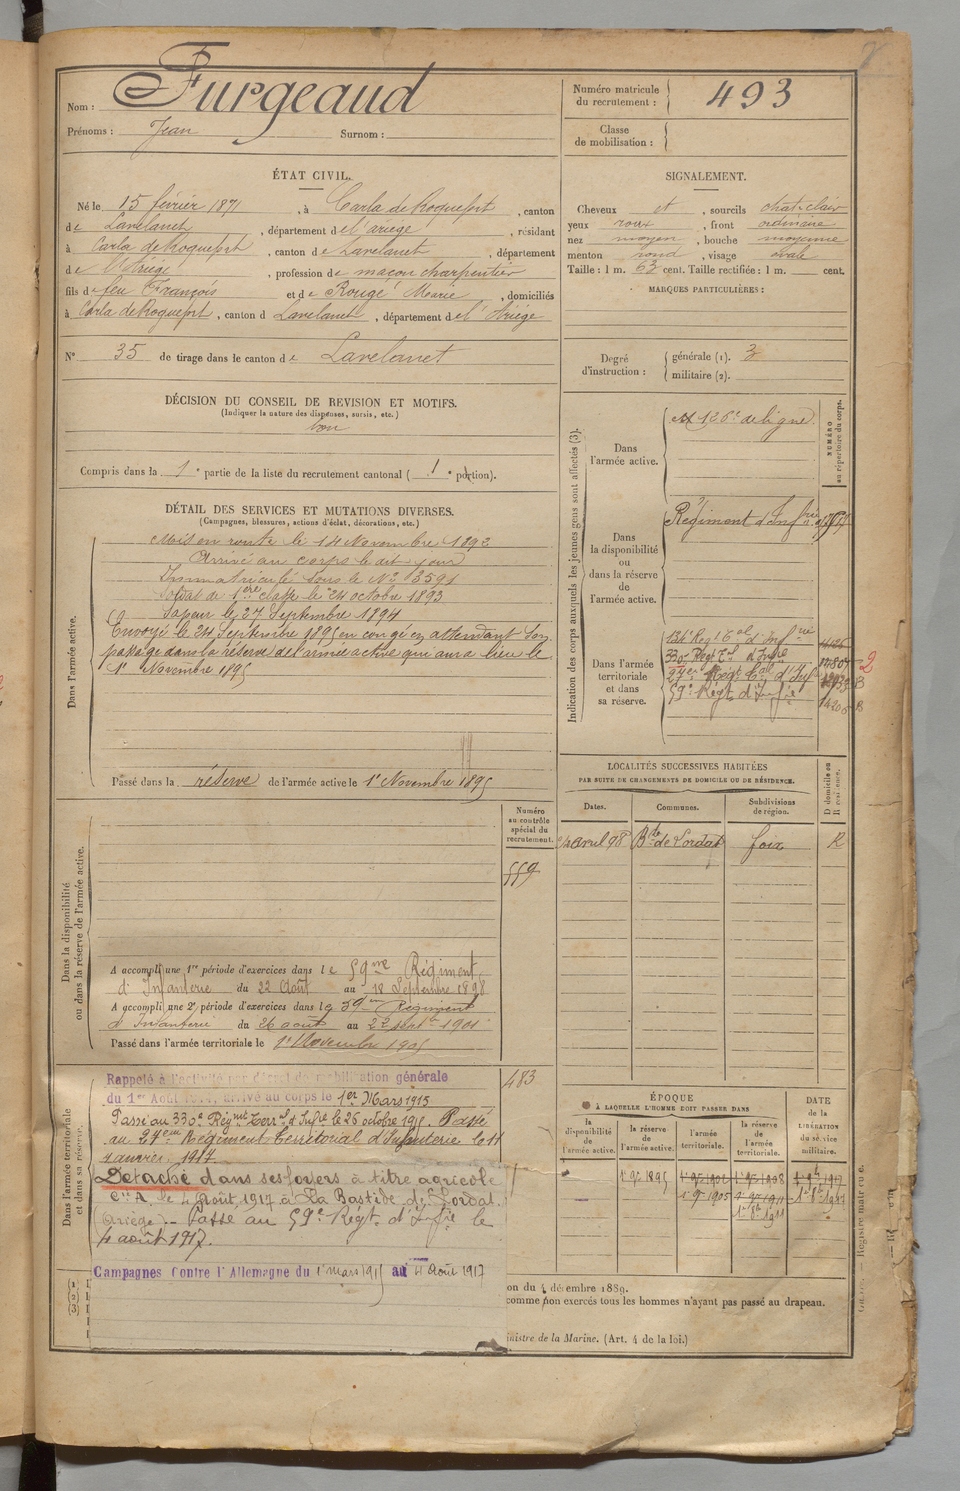 Nom : Furgeaud
Prénoms : Jean Surnom :
Numéro matricule du recrutement : 493
Classe de mobilisation :
ÉTAT CIVIL.
Né le 15 février 1871, à Carla de Roquefort, canton
de Lavelanet, département de l'ariège, résidant
à Carla de Roquefort, canton de Lavelanet, département
de l'Ariège, profession de maçon charpentier
fils de feu François et de Rougé Marie, domiciliés
à Carla de Roquefort, canton d Lavelanet, département de l'Ariège
N° 35 de tirage dans le canton de Lavelanet
SIGNALEMENT.
Cheveux et, sourcils chat-clair
yeux roux, front ordinaire
nez moyen, bouche moyenne
menton rond, visage ovale
Taille : 1 m. 63 cent. Taille rectifiée : 1 m. cent.
MARQUES PARTICULIÈRES :
Degré d'instruction : générale (1). 3
militaire (2).
DÉCISION DU CONSEIL DE REVISION ET MOTIFS.
(Indiquer la nature des dispenses, sursis, etc.)
bon
Compris dans la 1e partie de la liste du recrutement cantonal ( 1e portion).
DÉTAIL DES SERVICES ET MUTATIONS DIVERSES.
(Campagnes, blessures, actions d'éclat, décorations, etc.)
Dans l'armée active.
Mis en route le 14 Novembre 1892
Arrivé au corps le dit jour
Immatriculé sous le N° 3591
Soldat de 1ère classe le 24 octobre 1893
Sapeur le 27 Septembre 1894
Envoyé le 24 Septembre 1895 en congé en attendant son
passage dans la réserve de l'armée active qui aura lieu le
1er Novembre 1895
Passé dans la réserve de l'armée active le 1er Novembre 1895
Indication des corps auxquels les jeunes gens sont affectés (3).
NUMÉRO au répertoire du corps.
Dans l'armée active.
126e de ligne.
Dans la disponibilité ou dans la réserve de l'armée active.
Régiment d'Infrie
Dans l'armée territoriale et dans sa réserve.
134e Regt Eal d'Infrie
330e Regt Tal d'Infrie
27em Régt Tal d'Infie
59e Régt d'Infie
LOCALITÉS SUCCESSIVES HABITÉES
PAR SUITE DE CHANGEMENTS DE DOMICILE OU DE RÉSIDENCE.
Dates. Communes. Subdivisions de région. D domicile ou R résidence.
24 avril 98 Bde de Lordat foix R
Numéro au contrôle spécial du recrutement.
559
Dans la disponibilité ou dans la réserve de l'armée active.
A accompli une 1re période d'exercices dans le 59me Régiment
d'Infanterie du 22 Août au 18 Septembre 1898
A accompli une 2e période d'exercices dans le 59me Régiment
d'Infanterie du 26 août au 22 septbre 1901
Passé dans l'armée territoriale le 1er Novembre 1905
483
Dans l'armée territoriale et dans sa réserve.
Rappelé à l'activité par décret de mobilisation générale
du 1er Août 1914, arrivé au corps le 1er Mars 1915
Passé au 330e Régmt Terral d'Infie le 26 octobre 1915. Passé
au 27eme Régiment Territorial d'Infanterie le 11
janvier 1917.
Détaché dans ses foyers à titre agricole
Cie A. le 4 août 1917 à La Bastide de Lordat
(Ariège. _ Passé au 59e Régt d'Infie le
4 août 1917.
Campagnes Contre l'Allemagne du 1er mars 1915 au 4 Août 1917
ÉPOQUE
À LAQUELLE L'HOMME DOIT PASSER DANS
la disponibilité de l'armée active. la réserve de l'armée active. l'armée territoriale. la réserve de l'armée territoriale.
DATE de la LIBÉRATION du service militaire.
1er 9bre 1895 1er 9bre 1902 1er 9bre 1908 1er 9bre 1917
1er 9bre 1905 1er 9bre 1911 1er 8bre 1917
1er 8bre 1911
on du 4 décembre 1889.
comme non exercés tous les hommes n'ayant pas passé au drapeau.
inistre de la Marine. (Art. 4 de la loi.)
(1)
(2)
(3)